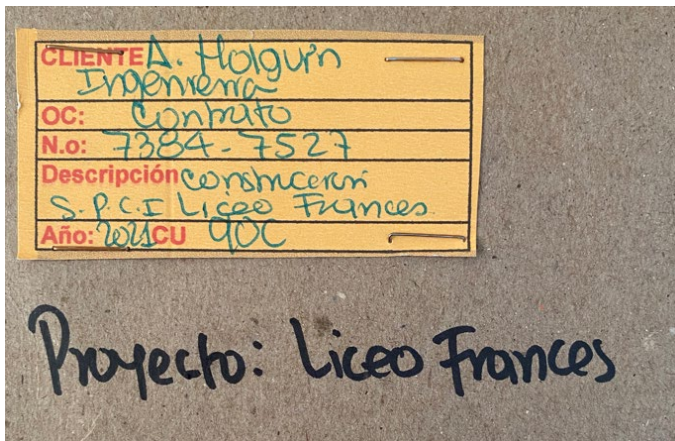 CLIENTE A. Holguín
Ingenieria
OC: Contrato
N.o: 7384-7527
Descripción Construcción
S.P.C.I Liceo Frances
Año: 2021 CU 90C
Proyecto: Liceo Frances